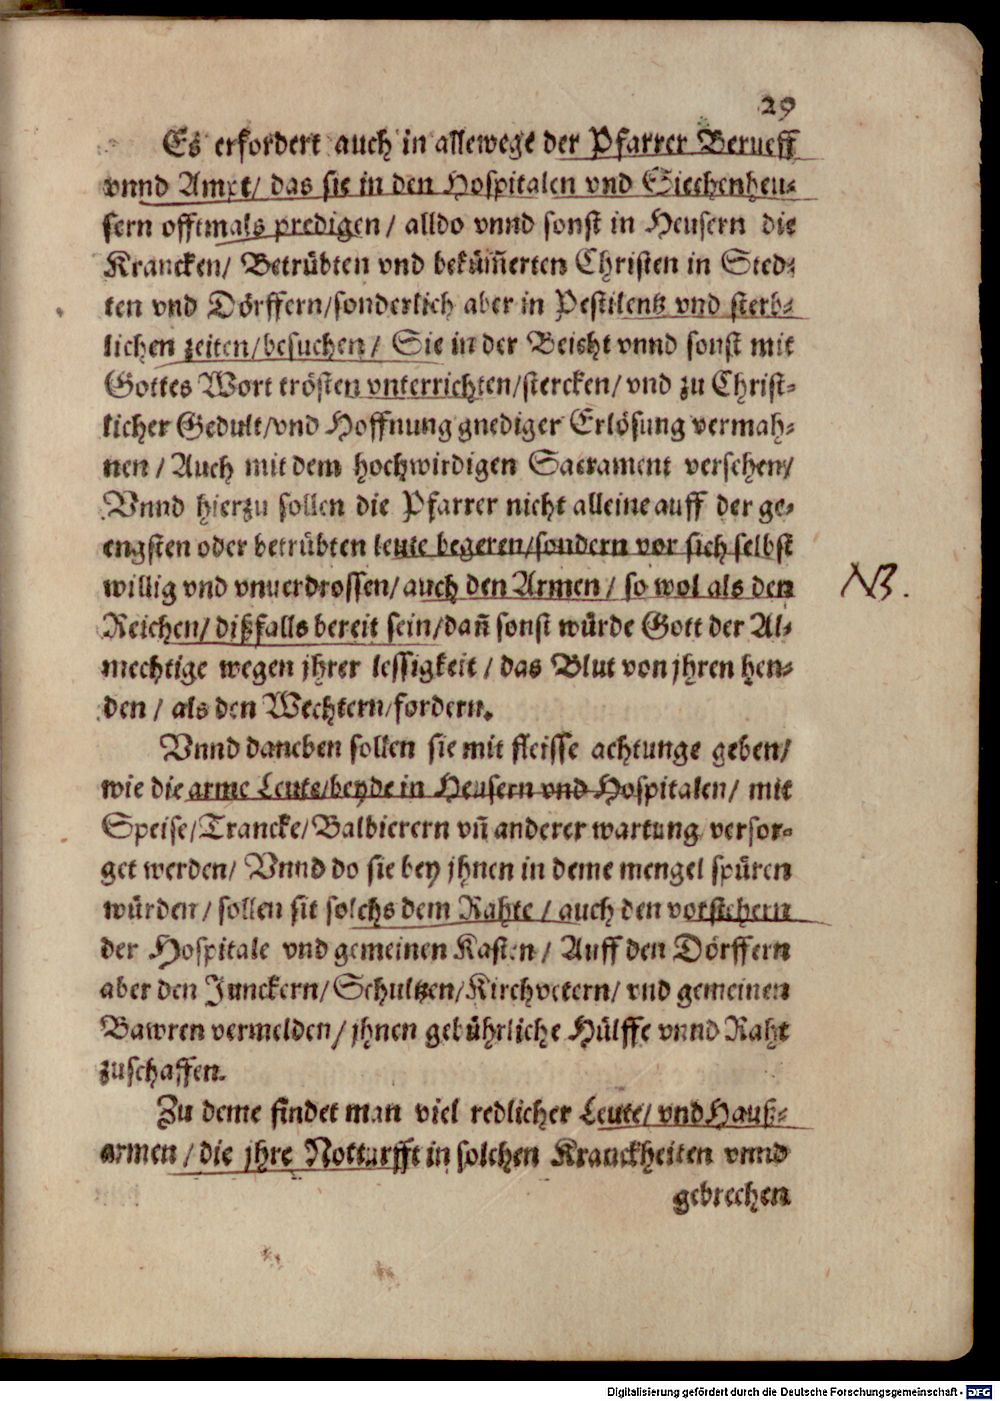 29
Es erfordert auch in allewege der Pfarrer Berueff
vnnd Ampt/ das sie in den Hospitalen vnd Siechenheu-
sern offtmals predigen/ alldo vnnd sonst in Heusern die
Krancken/ Betrübten vnd bekům̃erten Christen in Sted-
ten vnd Dörffern/sonderlich aber in Pestilentz vnd sterb-
lichen zeiten/besuchen/ Sie in der Beicht vnnd sonst mit
Gottes Wort trösten vnterrichten/stercken/ vnd zu Christ-
licher Gedult/vnd Hoffnung gnediger Erlösung vermah-
nen/ Auch mit dem hochwirdigen Sacrament versehen/
Vnnd hierzu sollen die Pfarrer nicht alleine auff der ge-
engsten oder betrübten leute begeren/sondern vor sich selbst
willig vnd vnuerdrossen/ auch den Armen/ so wol als den
NB.
Reichen/ dißfalls bereit sein/dañ sonst würde Gott der Al-
mechtige wegen jhrer lessigkeit/ das Blut von jhren hen-
den/ als den Wechtern/fordern.
Vnnd daneben sollen sie mit fleisse achtunge geben/
wie die arme Leute/beyde in Heusern vnd Hospitalen/ mit
Speise/Trancke/Balbierern vñ anderer wartung versor-
get werden/ Vnnd do sie bey jhnen in deme mengel spüren
würden/ sollen sie solchs dem Rahte/ auch den vorstehern
der Hospitale vnd gemeinen Kasten/ Auff den Dörffern
aber den Junckern/Schultzen/Kirchvetern/ vnd gemeinen
Bawren vermelden/ jhnen gebührliche Hülffe vnnd Raht
zuschaffen.
Zu deme findet man viel redlicher Leute/ vnd Hauß-
armen/die jhre Notturfft in solchen Kranckheiten vnnd
gebrechen
Digitalisierung gefördert durch die Deutsche Forschungsgemeinschaft - DFG